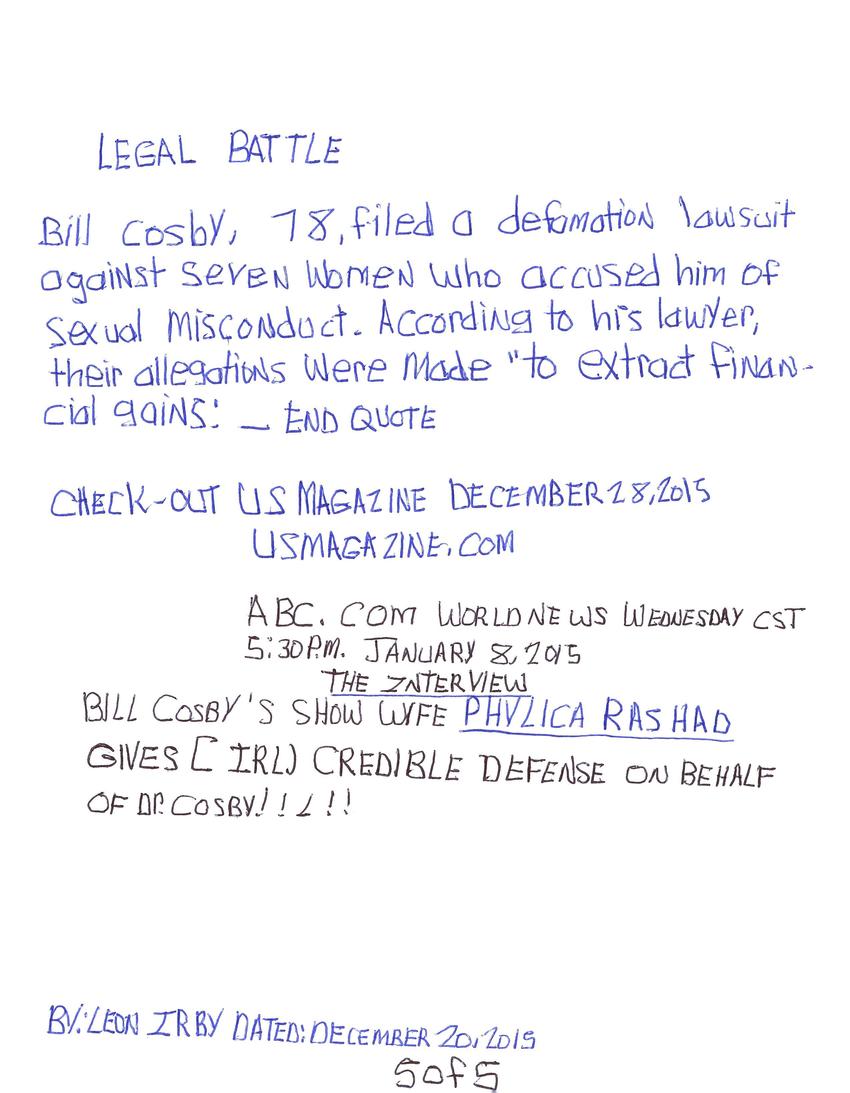 LEGAL BATTLE
Bill Cosby, 78, filed a defamation lawsuit
against seven women who accused him of
sexual misconduct. According to his lawyer,
their allegations were made "to extract finan-
cial gains." — END QUOTE
CHECK-OUT US MAGAZINE DECEMBER 28, 2015
USMAGAZINE.COM
ABC.COM WORLD NEWS WEDNESDAY CST
5:30 P.M. JANUARY 8, 2015
THE INTERVIEW
BILL COSBY'S SHOW WIFE PHYLICA RASHAD
GIVES [IRL] CREDIBLE DEFENSE ON BEHALF
OF DR. COSBY!!!!!
BY: LEON IRBY DATED: DECEMBER 20, 2015
5 of 5